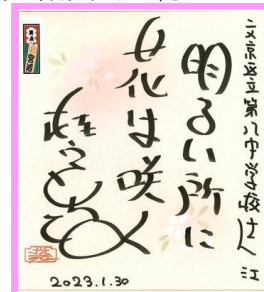 文京区立第八中学校さん江
明るい所に
花は咲く
2023.1.30